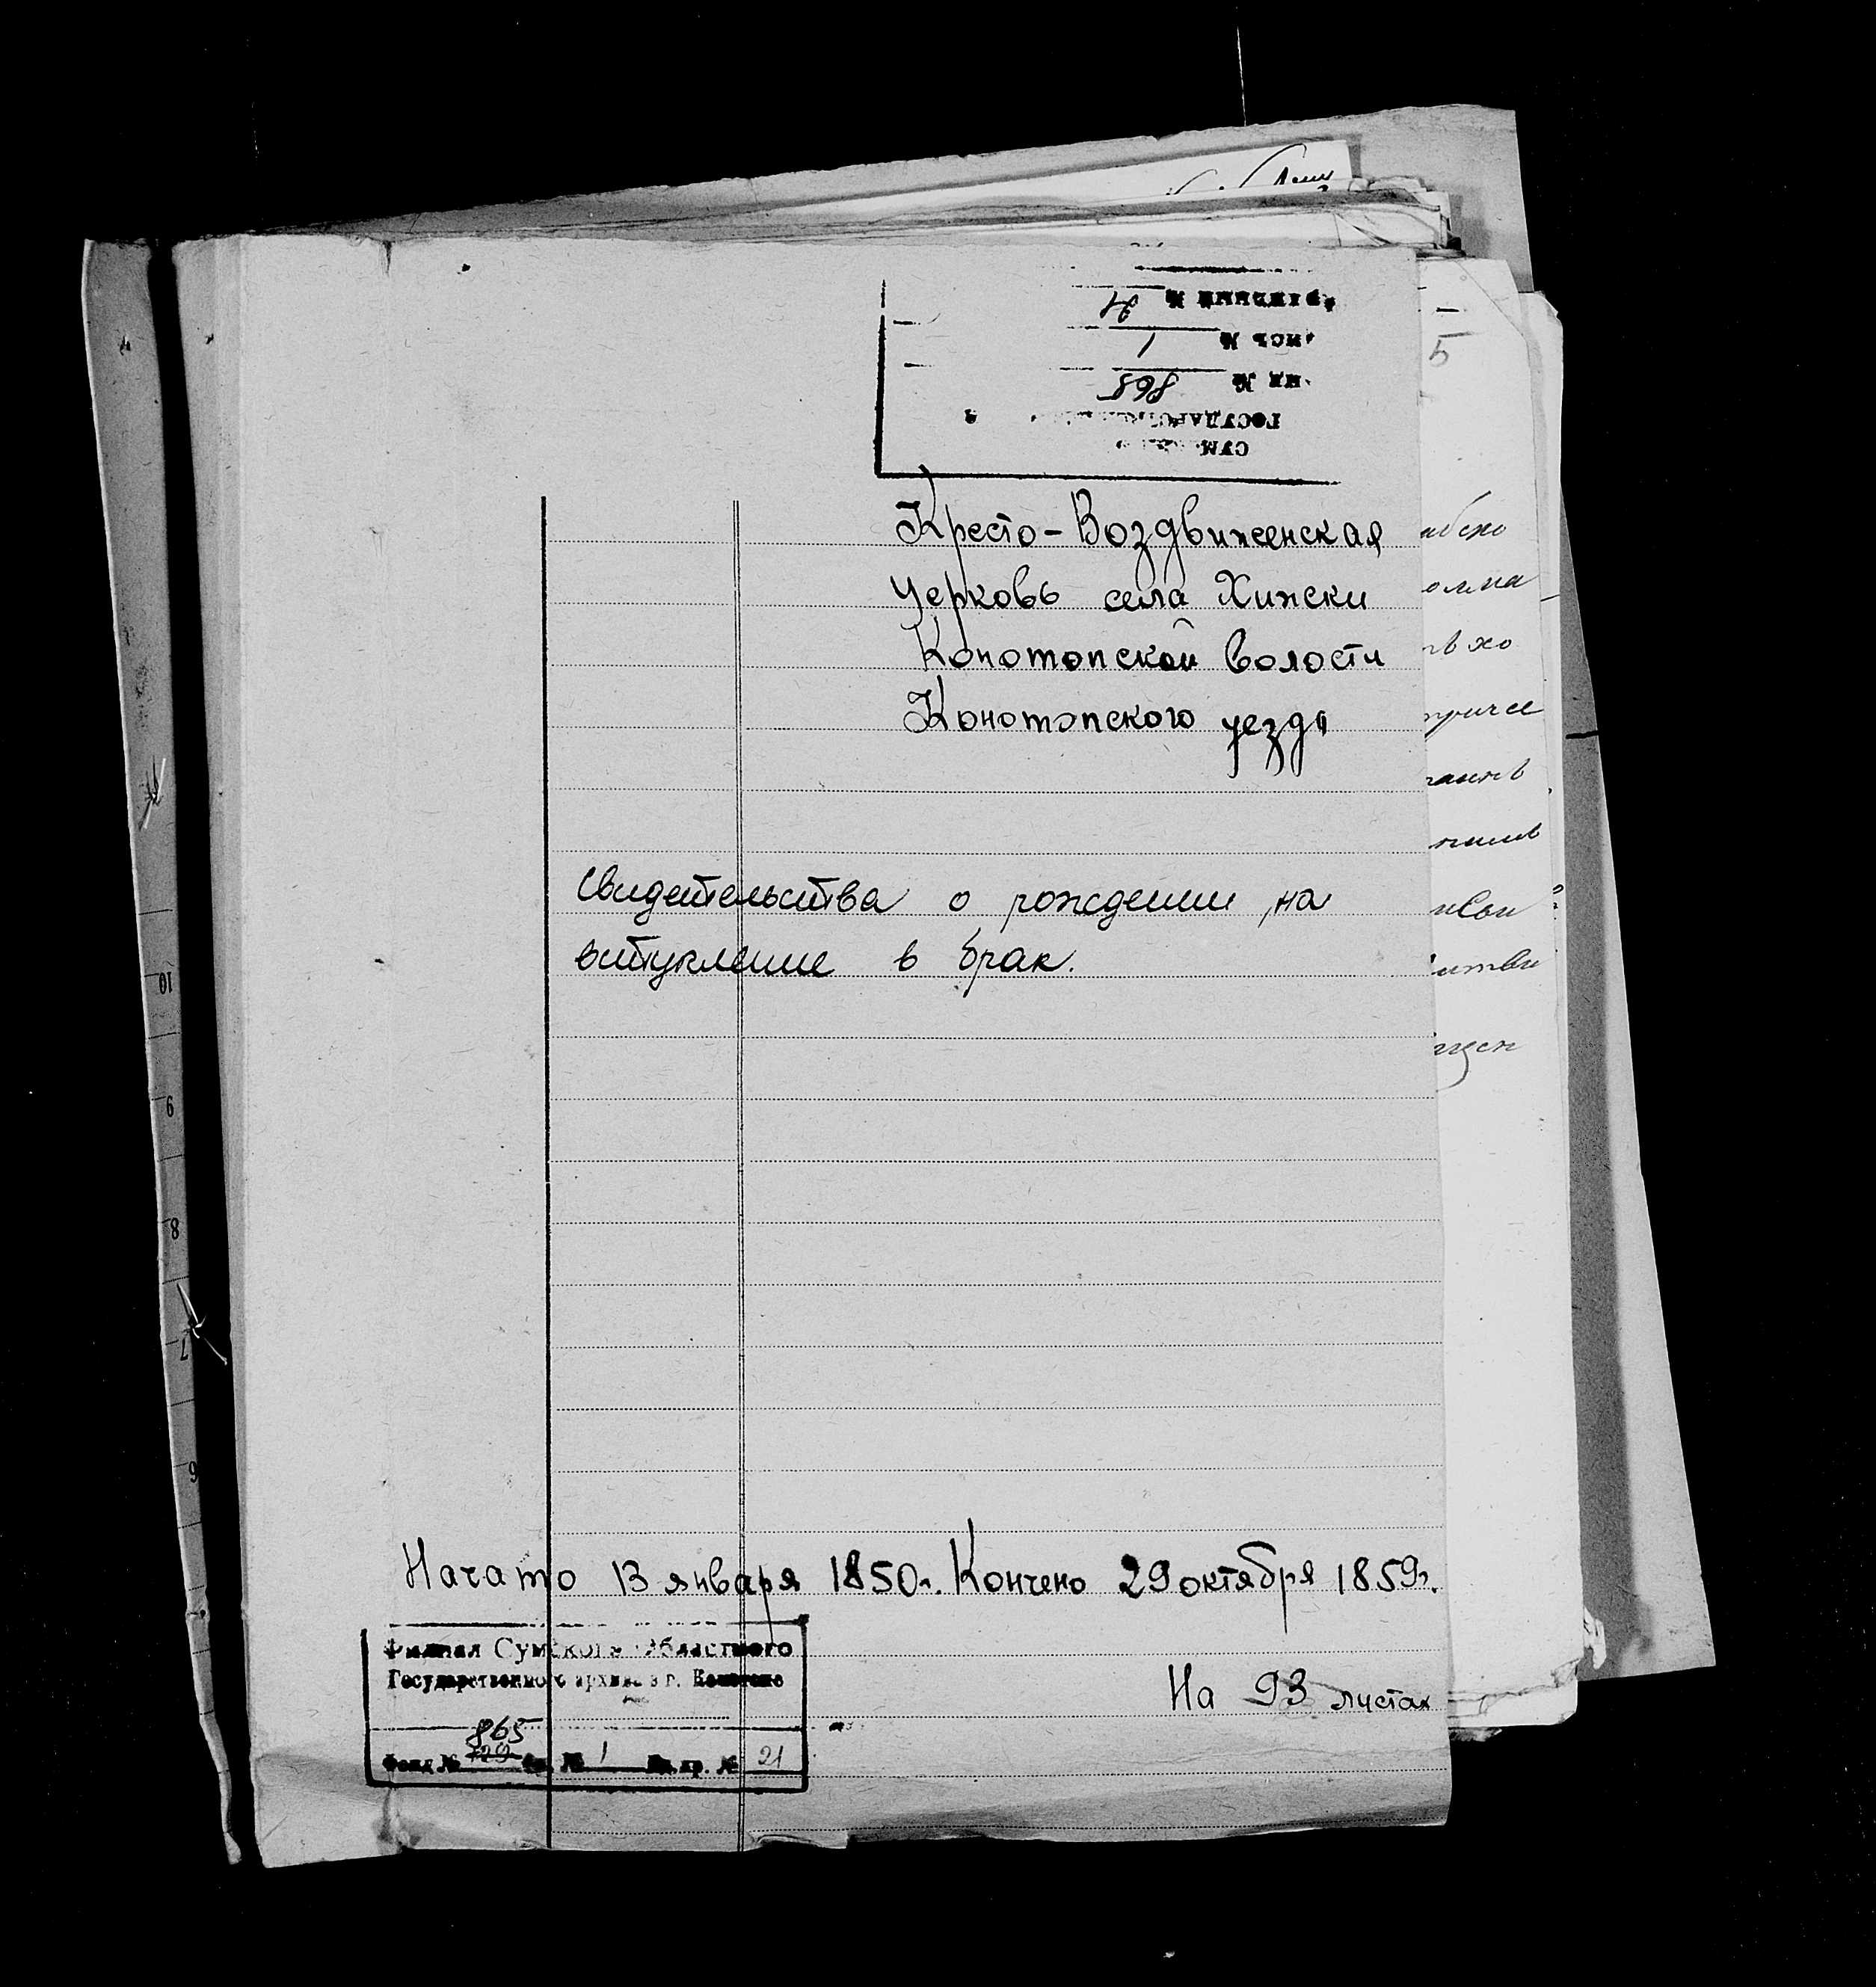 865
1
21
Кресто-Воздвиженская
церковь села Хижски
Конотопской волости
Конотопского уезда
Свидетельства о рождении, на
вступление в брак.
Начато 13 января 1850г. Кончено 29 октября 1859г.
Филиал Сумского Областного
Государственного архива в г. Конотопе
На 93 листах
865
Фонд № 129 Оп. № 1 Ед. хр. № 21
5
10
9
8
7
6